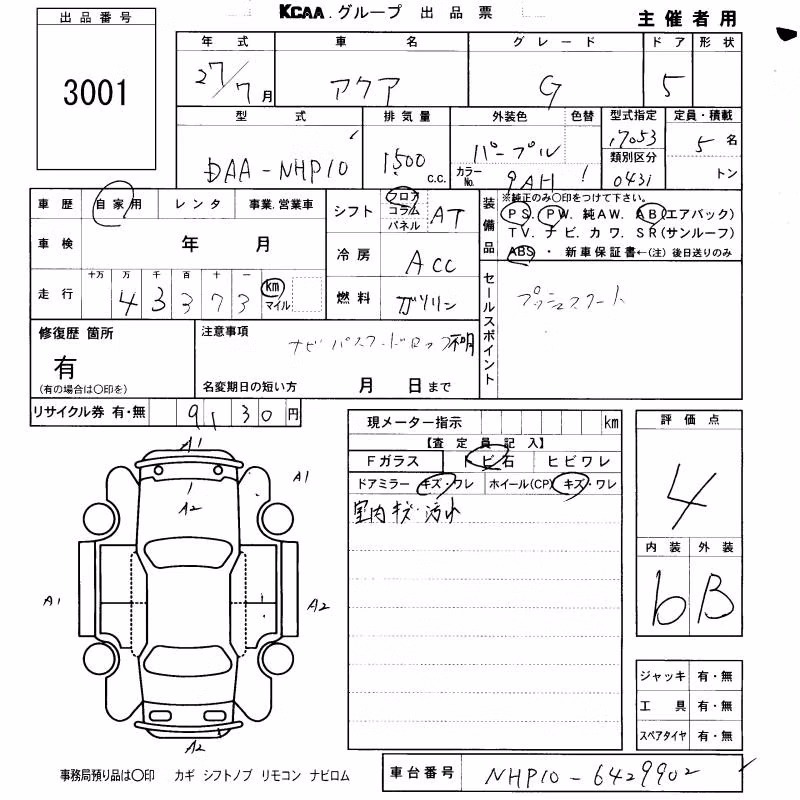 KCAA.グループ 出品票
主催者用
出品番号
3001
年式 車名 グレード ドア 形状
27/7月 アクア G 5
型式 排気量 外装色 色替 型式指定 定員・積載
DAA-NHP10 1500 c.c. パープル 17053 5名
カラーNo. 9AH 類別区分 0431 トン
車歴 自家用 レンタ 事業.営業車
シフト フロア コラム パネル AT
装備品 ※純正のみ〇印をつけて下さい。
PS. PW. 純AW. AB(エアバック)
TV. ナビ. カワ. SR(サンルーフ)
ABS・新車保証書←(注)後日送りのみ
車検 年 月
冷房 ACC
走行 十万 万 千 百 十 一
4 3 3 7 3 km マイル
燃料 ガソリン
セールスポイント プッシュスタート
修復歴 箇所
有
(有の場合は〇印を)
注意事項
ナビパスワードロック不明
名変期日の短い方 月 日まで
リサイクル券 有・無 9130円
現メーター指示 km
【査定員記入】
Fガラス トビ石 ヒビワレ
ドアミラー キズ・ワレ ホイール(CP) キズ・ワレ
室内キズ・汚れ
評価点
4
内装 外装
b B
A1
A1
A2
A1
A2
A2
ジャッキ 有・無
工具 有・無
スペアタイヤ 有・無
事務局預り品は〇印 カギ シフトノブ リモコン ナビロム
車台番号 NHP10-6429902